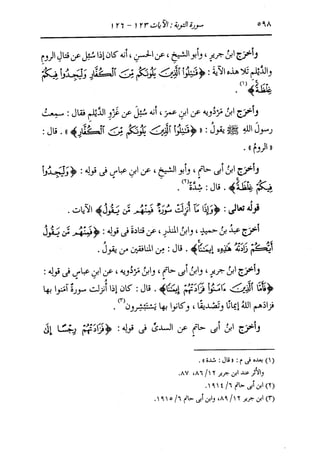 ٥٩٨
سورة التوبة : الآيات ١٢٣ - ١٢٦
وأخرج ابنُ جريرٍ ، وأبو الشيخِ ، عن الحسنِ ، أنه كان إذا سُئل عن قتالِ الرومِ
والدَّيْلمِ تلا هذه الآيةَ : ﴿ قَٰتِلُوا۟ ٱلَّذِينَ يَلُونَكُم مِّنَ ٱلْكُفَّارِ وَلْيَجِدُوا۟ فِيكُمْ
غِلْظَةً ﴾(١) .
وأخرج ابنُ مَرْدُويه عن ابنِ عمرَ ، أنه سُئل عن غزوِ الدَّيْلمِ فقال : سمِعتُ
رسولَ اللهِ ﷺ يقولُ : « ﴿ قَٰتِلُوا۟ ٱلَّذِينَ يَلُونَكُم مِّنَ ٱلْكُفَّارِ ﴾ » . قال :
« الروم » .
وأخرج ابنُ أبى حاتمٍ ، وأبو الشيخِ ، عن ابنِ عباسٍ فى قولِه : ﴿ وَلْيَجِدُوا۟
فِيكُمْ غِلْظَةً ﴾ . قال : شدةً(٢) .
قولُه تعالى : ﴿ وَإِذَا مَآ أُنزِلَتْ سُورَةٌ فَمِنْهُم مَّن يَقُولُ ﴾ الآيات .
أخرج عبدُ بنُ حميدٍ ، وابنُ المنذرِ ، عن قتادةَ فى قولِه : ﴿ فَمِنْهُم مَّن يَقُولُ
أَيُّكُمْ زَادَتْهُ هَٰذِهِۦٓ إِيمَٰنًا ﴾ . قال : مِن المنافقين مَن يقولُ .
وأخرج ابنُ جريرٍ ، وابنُ أبى حاتمٍ ، وابنُ مَرْدُويه ، عن ابنِ عباسٍ فى قولِه :
﴿ فَأَمَّا ٱلَّذِينَ ءَامَنُوا۟ فَزَادَتْهُمْ إِيمَٰنًا ﴾ . قال : كان إذا أُنزلت سورةٌ آمَنوا بها
فزادهم اللهُ إيمانًا وتصديقًا ، وكانوا بها يَسْتَبشِرون(٣) .
وأخرج ابنُ أبى حاتمٍ عن السدىِّ فى قولِه : ﴿ فَزَادَتْهُمْ رِجْسًا إِلَىٰ
(١) بعده فى م : « قال : شدة » .
والأثر عند ابن جرير ١٢/ ٨٦، ٨٧.
(٢) ابن أبى حاتم ٦/ ١٩١٤.
(٣) ابن جرير ١٢/ ٨٩، وابن أبى حاتم ٦/ ١٩١٥.